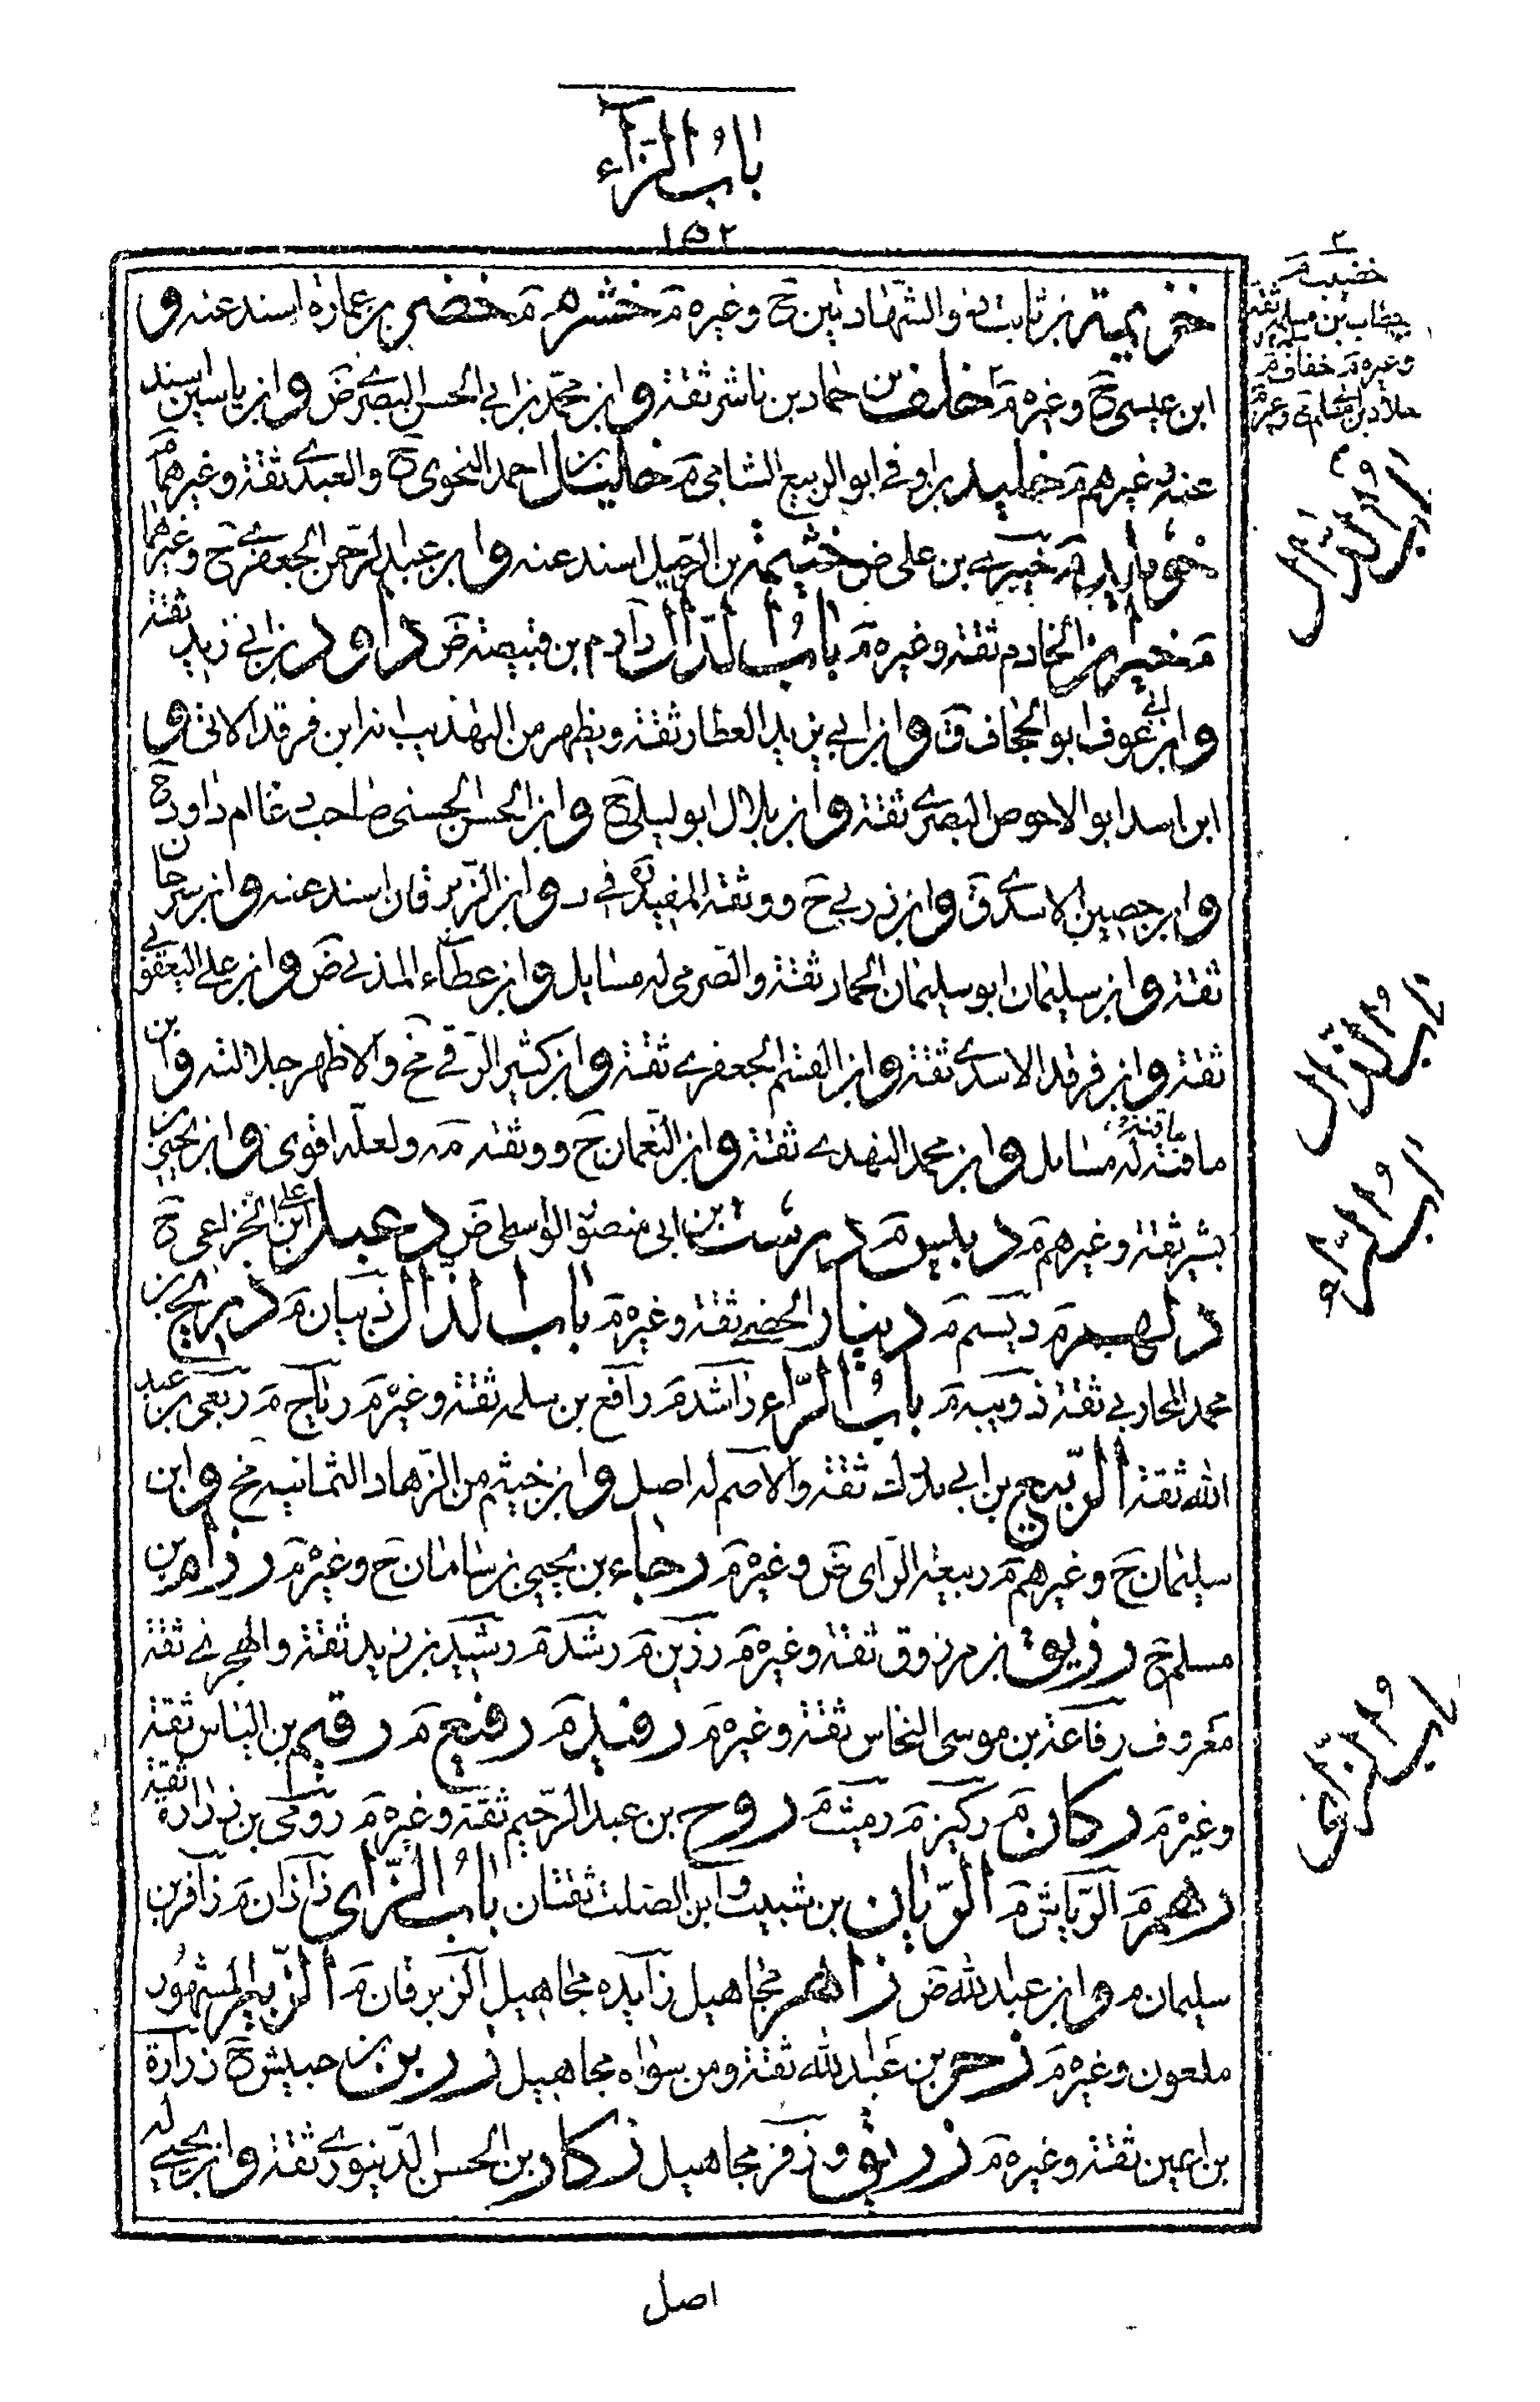 باب الزاء
١٥٢
خزيمة بن ثابت ذو الشهادتين ح وغيره م خشرم م خضر بن عمارة اسند عنه و
ابن عيسى ح وغيره م خلف بن حماد بن ناشر ثقة وابن محمد بن ابي الحسن البصري ض وابن ياسين اسند
عنه وغيرهم م خليد بن اوفى ابو الربيع الشامي م خليل بن احمد النحوي ح والعبدي ثقة وغيرهما م
خيبري بن علي ض خيثمة بن الرحيل اسند عنه وابن عبد الرحمن الجعفري ح وغيرهما
م خيران الخادم ثقة وغيره م باب الدال دارم بن قبيصة ض داود بن ابي زيد ثقة
وابن ابي عوف ابو الجحاف ق وابن ابي يزيد العطار ثقة ويظهر من التهذيب انه ابن فرقد الاتي و
ابن اسد ابو الاحوص البصري ثقة وابن بلال ابو ليلى ح وابن الحسن الحسني صاحب دعاء ام داود ح
وابن حصين الاسدي ق وابن زربي ح ووثقه المفيد في د وابن الزبرقان اسند عنه وابن سرحان
ثقة وابن سليمان ابو سليمان الحمار ثقة والصرمي له مسايل وابن عطاء المدني ض وابن علي اليعقوبي
ثقة وابن فرقد الاسدي ثقة وابن القسم الجعفري ثقة وابن كثير الرقي مخ والاظهر جلالته وابن
مافنه له مسايل وابن محمد النهدي ثقة وابن النعمان ح ووثقه مه ولعله اقوى وابن يحيى بن
بشير ثقة وغيرهم م دبيس م درست بن ابي منصور الواسطي ض دعبل بن علي الخزاعي ح
دلهم م ديسم م دينار الخصي ثقة وغيره م باب الذال ذبيان م ذريح بن
محمد المحاربي ثقة ذويبه م باب الراء راشد م رافع بن سلمه ثقة وغيره م رباح م ربعي بن عبد
الله ثقة الربيع بن ابي مدرك ثقة والاصم له اصل وابن خيثم من الزهاد الثمانيه مخ وابن
سليمان ح وغيرهم م ربيعة الراى ض وغيره م رجاء بن يحيى بن سامان ح وغيره م رزام بن
مسلم ح رزيق بن مرزوق ثقة وغيره م رزين م رشد م رشيد بن زيد ثقة والهجري ثقة
معروف رفاعة بن موسى النخاس ثقة وغيره م رفيد م رفيع م رقيم بن الياس ثقة
وغيره م ركان م ركيز م رميث م روح بن عبد الرحيم ثقة وغيره م رومي بن زرارة ثقة
رهم م الرياش م الريان بن شبيب وابن الصلت ثقتان باب الزاى زاذان م زافر بن
سليمان م وابن عبد الله ض زاهر مجاهيل زايده مجاهيل الزبرقان م الزبير المشهور
ملعون وغيره م زحر بن عبد الله ثقة ومن سواه مجاهيل زر بن حبيش ح زرارة
بن اعين ثقة وغيره م زريق وزفر مجاهيل زكار بن الحسن الدينوري ثقة وابن يحيى له
اصل
خضيب م
خطاب بن مسلمه ثقة
وغيره م خفاف م
باب الدال
باب الذال
باب الراء
باب الزاى